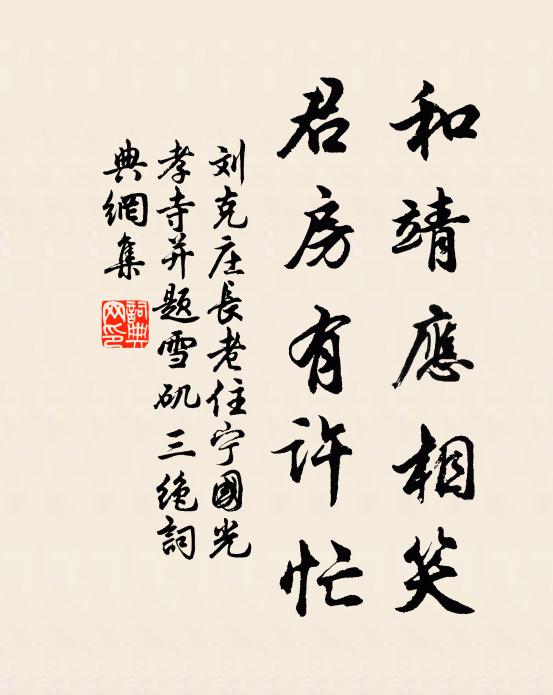 和靖應相笑
君房有許忙
刘克庄長老住宁國光
孝寺并题雪矶三绝詞
典網集
詞典
网印